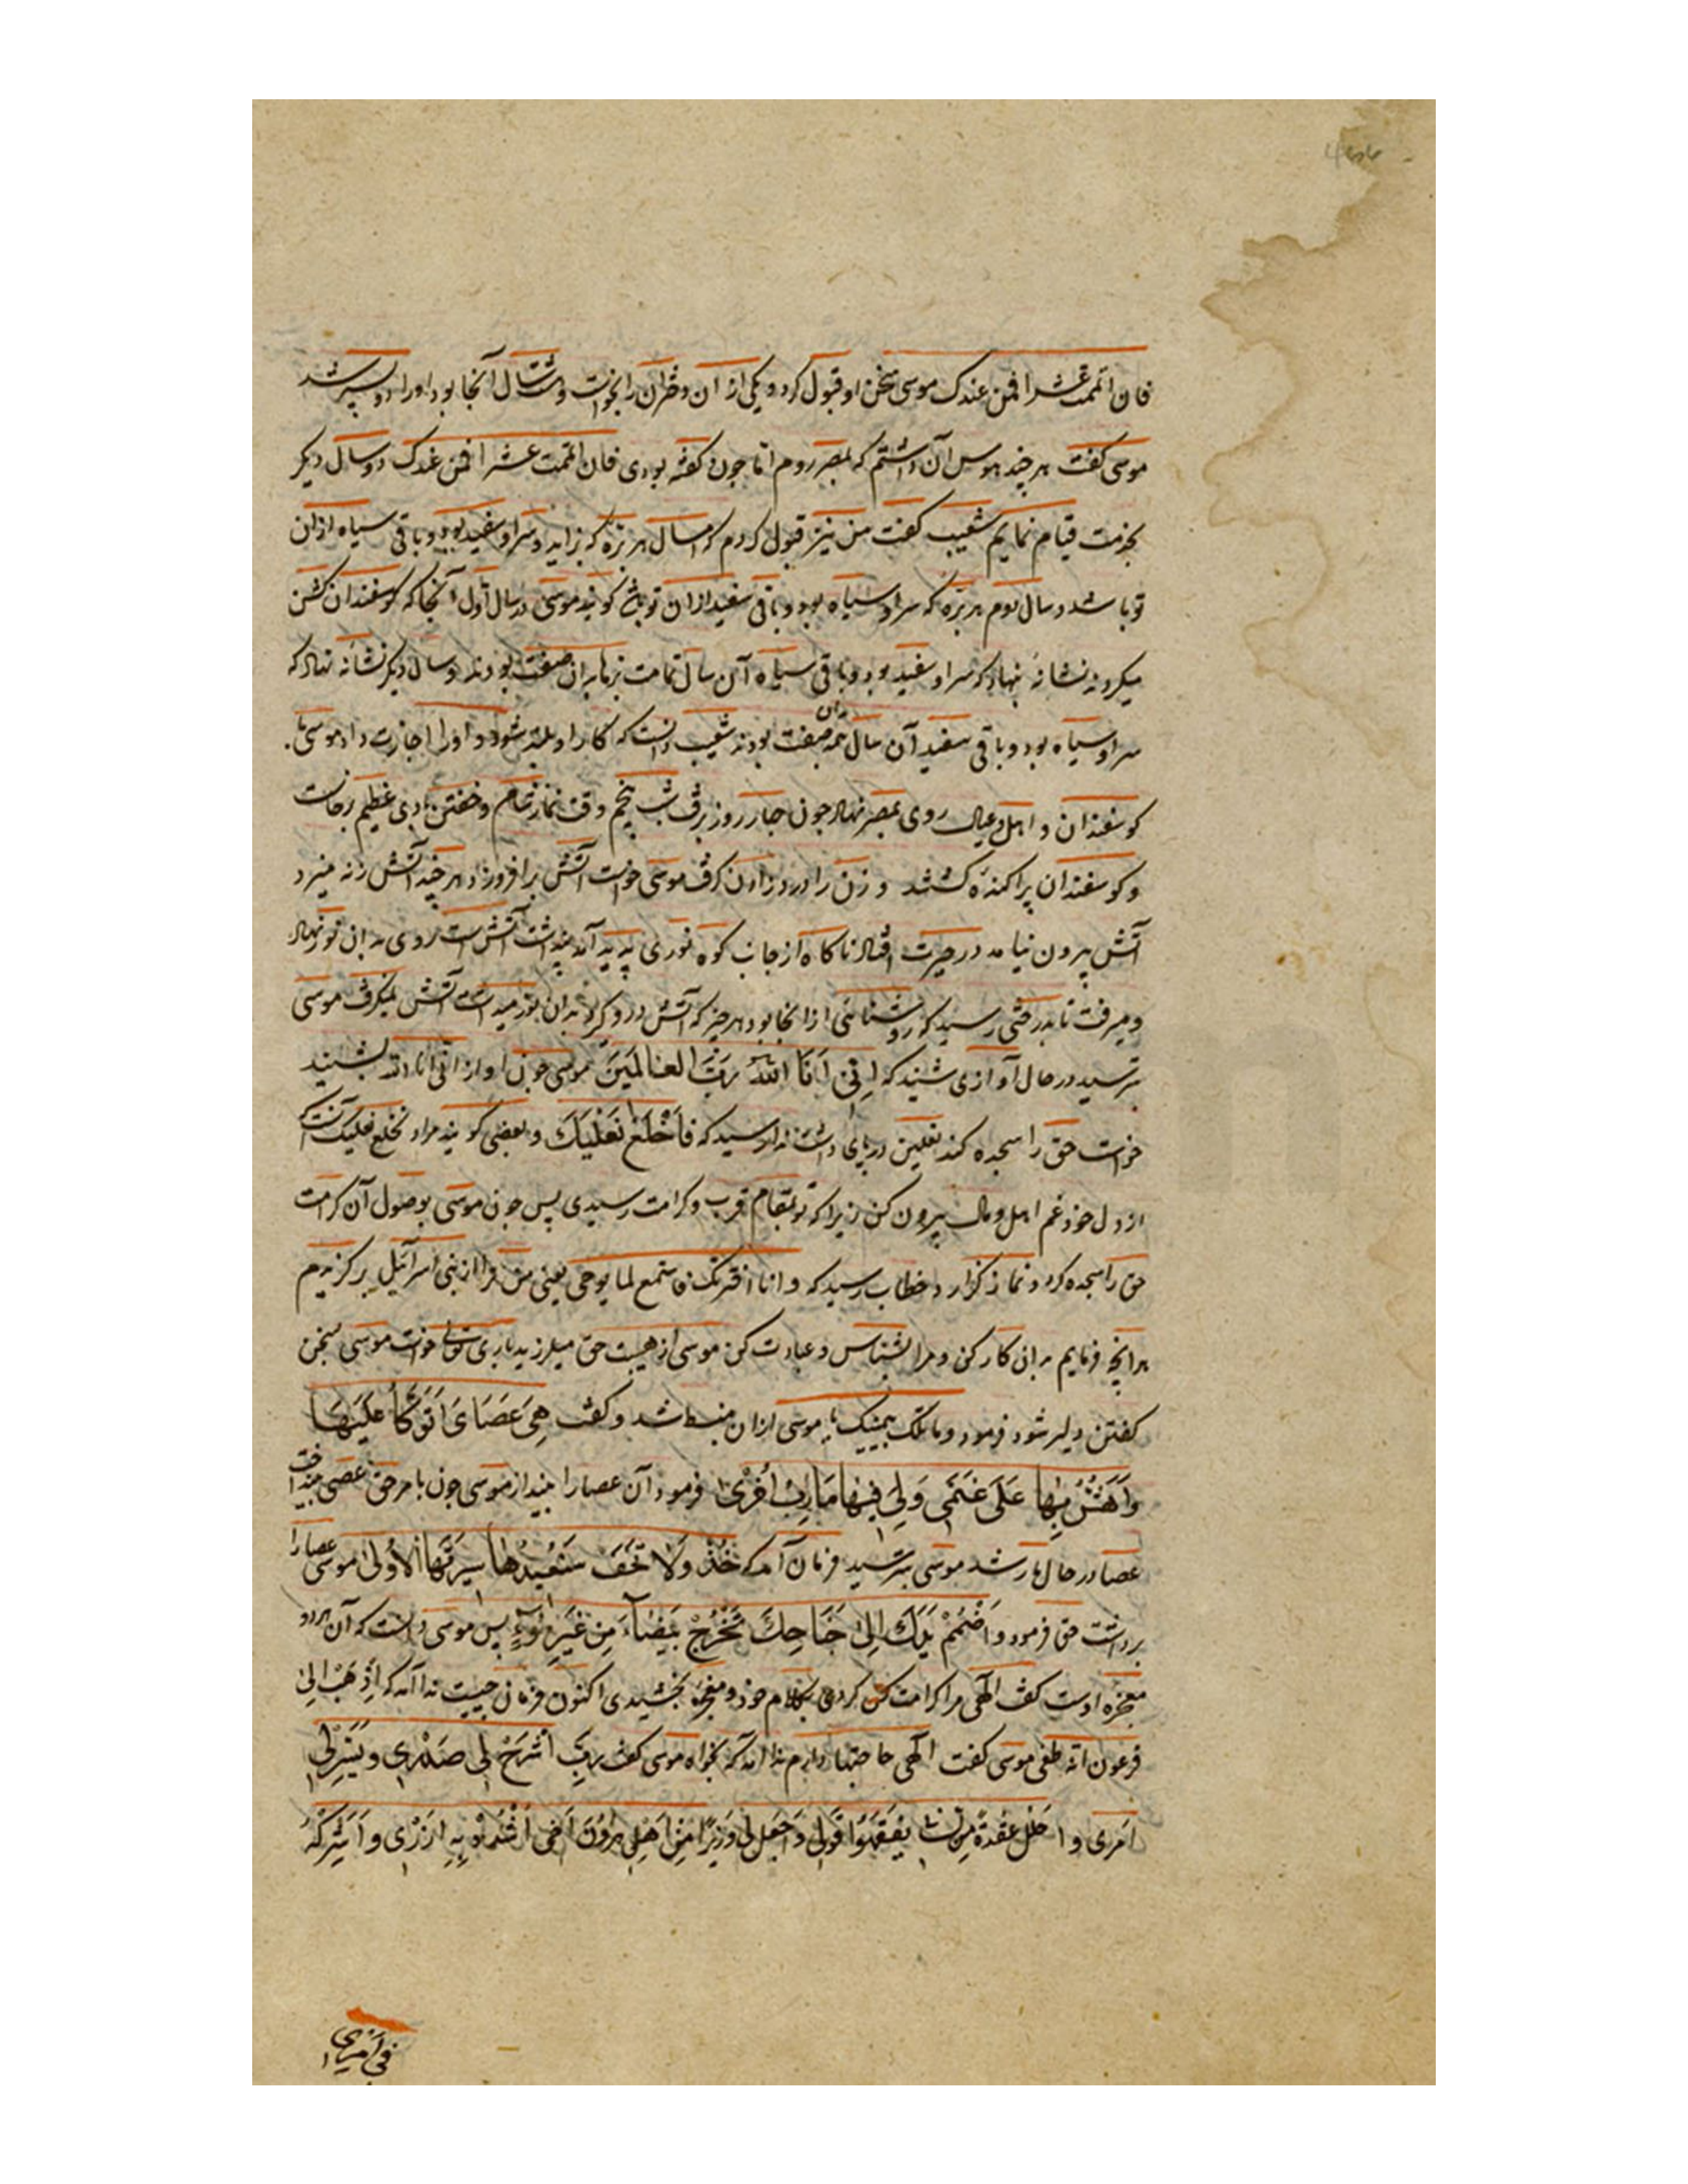 فان اتممت عشرا فمن عندک موسی سخن او قبول کرد و یکی از آن دختران را بخواست و هشت سال آنجا بود او را دو پسر شد
موسی کفت هر چند هوس آن داشتم که بمصر روم اما چون تو کفته بودی فان اتممت عشرا فمن عندک دو سال دیکر
بخدمت قیام نمایم شعیب کفت من نیز قبول کردم که امسال هر بره که بزاید و سر او سفید بود و باقی سیاه ازان
تو باشد و سال دوم هر بره که سر او سیاه بود و باقی سفید ازان تو باشد کویند موسی در سال اول آنجا که کوسفندان کشن
میکردند نشانهٔ نهاد که سر او سفید بود و باقی سیاه آن سال تمامت بزها بران صفت بودند و سال دیکر نشانه نهاد که
سر او سیاه بود و باقی سفید آن سال همه بدان صفت بودند شعیب دانست که کار او بلند شود و او را اجازت داد موسی با
کوسفندان و اهل و عیال روی بمصر نهاد چون چهار روز برفت شب پنجم وقت نماز شام و خفتن بادی عظیم برخاست
و کوسفندان پراکنده کشتند و زن را درد زادن کرفت موسی خواست آتش برافروزد هر چند آتش زنه میزد
آتش بیرون نیامد در حیرت افتاد ناکاه از جانب کوه نوری پدید آمد پنداشت آتش است روی بدان نور نهاد
و میرفت تا بدرختی رسید که روشنائی از آنجا بود هر چیز که آتش درو کیرد بدان نور میداشت آتش نمیکرفت موسی
بترسید در حال آوازی شنید که اِنّی اَنَا اللّٰهُ رَبُّ العَالَمینَ موسی چون آواز انی انا الله بشنید
خواست حق را سجده کند نعلین در پای داشت ندا رسید که فَاخْلَعْ نَعْلَیْكَ و بعضی کویند مراد بخلع نعلیک آنست که
از دل خود غم اهل و مال بیرون کن زیرا که تو بمقام قرب و کرامت رسیدی پس چون موسی بوصول آن کرامت
حق را سجده کرد و نماز کزارد خطاب رسید که و انا اخترتک فاستمع لما یوحی یعنی من ترا از بنی اسرائیل برکزیدم
هرانچه فرمایم بدان کار کن و مرا بشناس و عبادت کن موسی از هیبت حق میلرزید باری تعالی خواست موسی سخن
کفتن دلیر شود فرمود و ما تلک بیمینک یا موسی ازان منبسط شد و کفت هِیَ عَصَایَ اَتَوَکَّأُ عَلَیْهَا
وَاَهُشُّ بِهَا عَلَی غَنَمی وَلِیَ فِیهَا مَآرِبُ اُخْرَی فرمود آن عصا را بینداز موسی چون بامر حق عصی بینداخت
عصا در حال مار شد موسی بترسید فرمان آمد که خُذْ وَلَا تَخَفْ سَنُعِیدُهَا سِیرَتَهَا الاُولَی موسی عصا را
برداشت حق فرمود وَاضْمُمْ یَدَكَ اِلَی جَنَاحِكَ تَخْرُجْ بَیْضَآءَ مِنْ غَیْرِ سُوءٍ پس موسی دانست که آن هر دو
معجزه اوست کفت الهی مرا کرامت کردی بکلام خود و معجزه بخشیدی اکنون فرمان چیست ندا آمد که اِذْهَبْ اِلَی
فرعون انه طغی موسی کفت الهی حاجتها دارم ندا آمد که بخواه موسی کفت رَبِّ اشْرَحْ لِی صَدْرِی وَیَسِّرْ لِی
اَمْرِی وَاحْلُلْ عُقْدَةً مِنْ لِسَانِی یَفْقَهُوا قَوْلِی وَاجْعَل لِی وَزِیرًا مِنْ اَهْلِی هَارُونَ اَخِی اُشْدُدْ بِهِ اَزْرِی وَاَشْرِکْهُ
فِی اَمْرِی